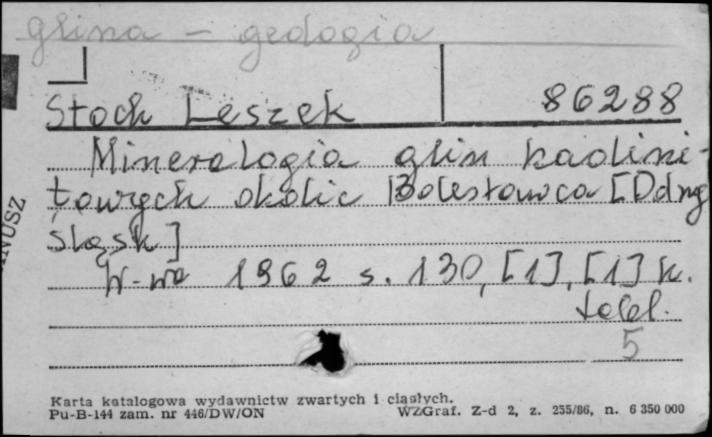 glina - geologia
Stoch Leszek 86288
Mineralogia glin kaolini-
towych okolic Bolesławca [Dolny
Śląsk]
W-wa 1962 s. 130, [1], [1] k.
tabl.
5
NUSZ
Karta katalogowa wydawnictw zwartych i ciągłych.
Pu-B-144 zam. nr 446/DW/ON WZGraf. Z-d 2, z. 255/86, n. 6 350 000